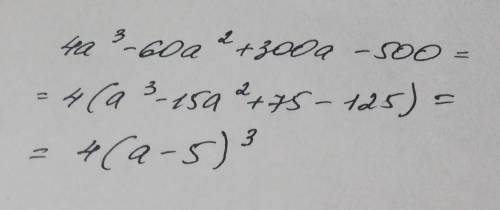 4a³-60a²+300a-500=
=4(a³-15a²+75-125)=
=4(a-5)³